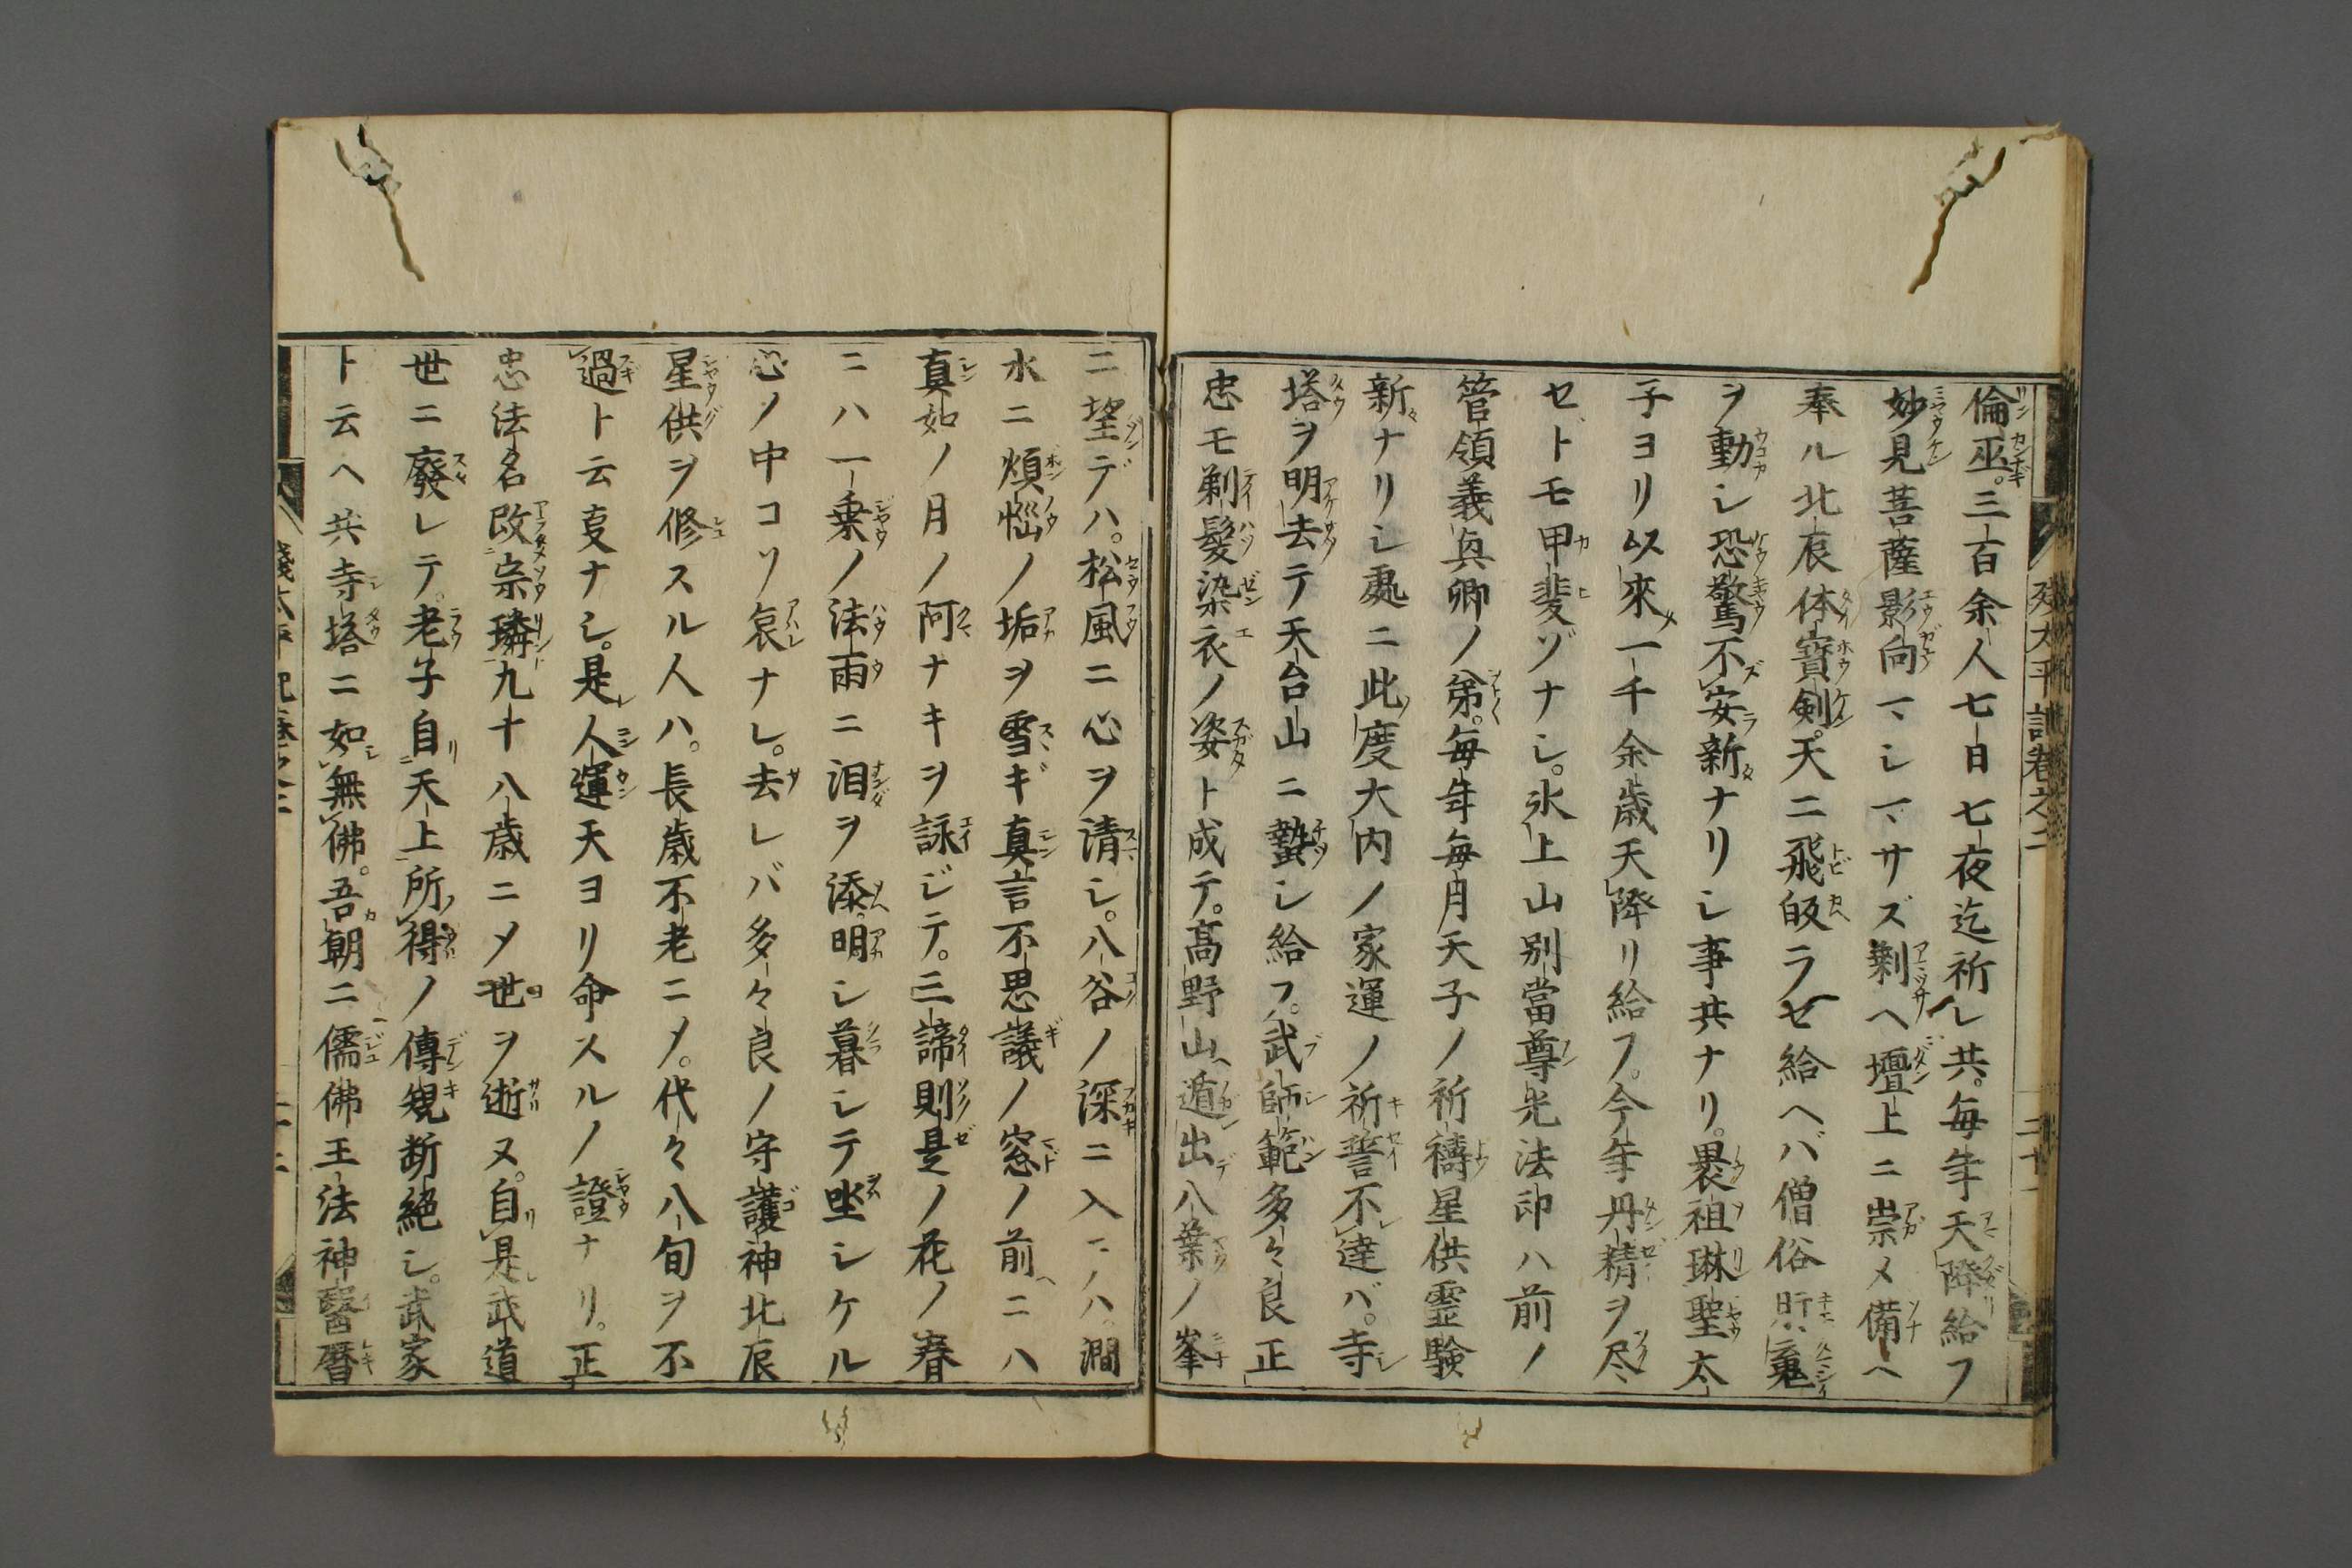 倫巫。三百余人七日七夜迄祈レ共。毎年天降給フ
妙見菩薩影向マシマサズ剰ヘ壇上ニ崇メ備ヘ
奉ル北辰体寳剣。天ニ飛皈ラセ給ヘバ僧俗肝䰟
ヲ動シ恐驚不安新ナリシ事共ナリ。曩祖琳聖太
子ヨリ以來一千余歳天降リ給フ。今年丹精ヲ尽
セトモ甲斐ゾナシ。氷上山別當尊光法印ハ前ノ
管領義真卿ノ弟。毎年毎月天子ノ祈禱星供霊験
新ナリシ処ニ此度大内ノ家運ノ祈誓不達バ。寺
塔ヲ明去テ天台山ニ蟄シ給フ。武師範多々良正
忠モ剃髮染衣ノ姿ト成テ。高野山ヘ遁出八葉ノ峯
ニ望デハ。松風ニ心ヲ清シ。八谷ノ深ニ入テハ。澗
水ニ煩惱ノ垢ヲ雪ギ真言不思議ノ窓ノ前ニハ
真如ノ月ノ阿ナキヲ詠ジテ。三諦則是ノ花ノ春
ニハ一乗ノ法雨ニ泪ヲ添。明シ暮シテ坐シケル
心ノ中コソ哀ナレ。去レバ多々良ノ守護神北辰
星供ヲ修スル人ハ。長歳不老ニメ。代々八旬ヲ不
過ト云叓ナシ。是人運天ヨリ命スルノ證ナリ。正
忠法名改宗璘九十八歳ニメ世ヲ逝ヌ。自是武道
世ニ廢レテ。老子自天上所得ノ傳䂓断絶シ。武家
ト云ヘ共寺塔ニ如無佛。吾朝ニ儒佛王法神醫暦
残太平記巻之二